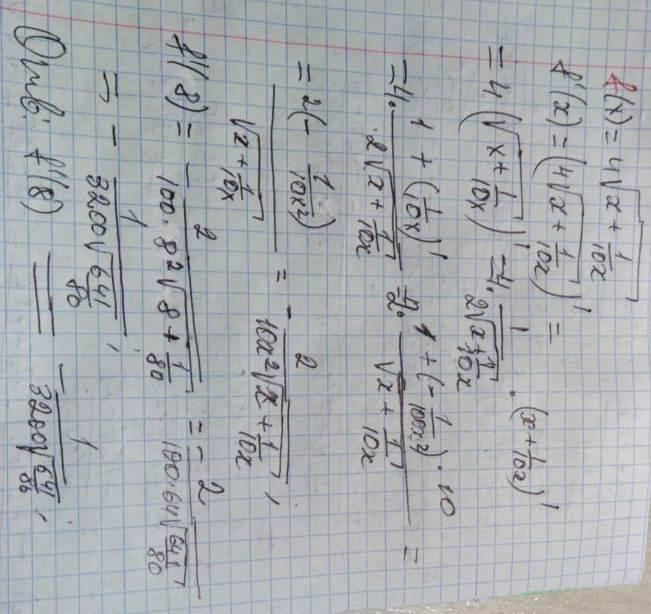 f(x) = 4√(x + 1/(10x))
f'(x) = (4√(x + 1/(10x)))' =
= 4(√(x + 1/(10x)))' = 4 · 1/(2√(x + 1/(10x))) · (x + 1/(10x))'
= 4 · (1 + (1/(10x))')/(2√(x + 1/(10x))) = 4/2 · (1 + (-1/(100x²)) · 10)/√(x + 1/(10x)) =
= 2(-1/(10x²))/√(x + 1/(10x)) = - 2/(10x²√(x + 1/(10x))),
f'(8) = - 2/(100 · 8²√(8 + 1/80)) = - 2/(100·64√(641/80))
= - 1/(3200√(641/80)),
Отв: f'(8) = - 1/(3200√(641/80)),